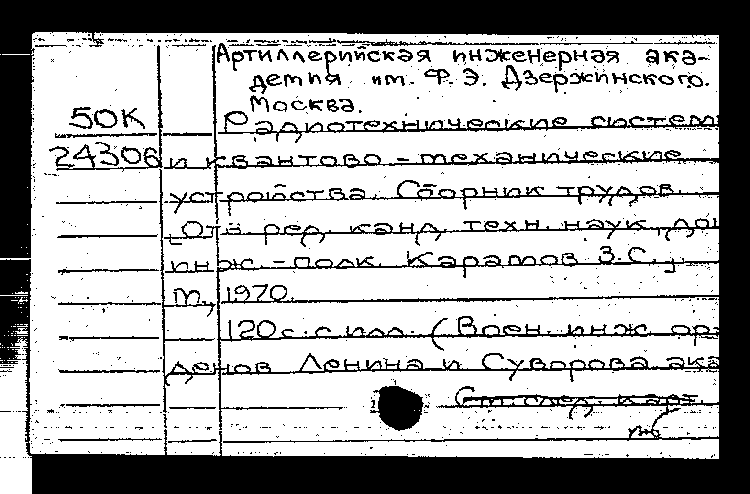 Артиллерийская инженерная ака-
демия им. Ф. Э. Дзержинского.
Москва.
50К
Радиотехнические систем
24306
и квантово-механические
устройства. Сборник трудов.
[Отв. ред. канд. техн. наук, до
инж.-полк. Каратов З.С.]
М., 1970.
120 с. с илл. (Воен. инж. ор
денов Ленина и Суворова ака
См. след. карт.